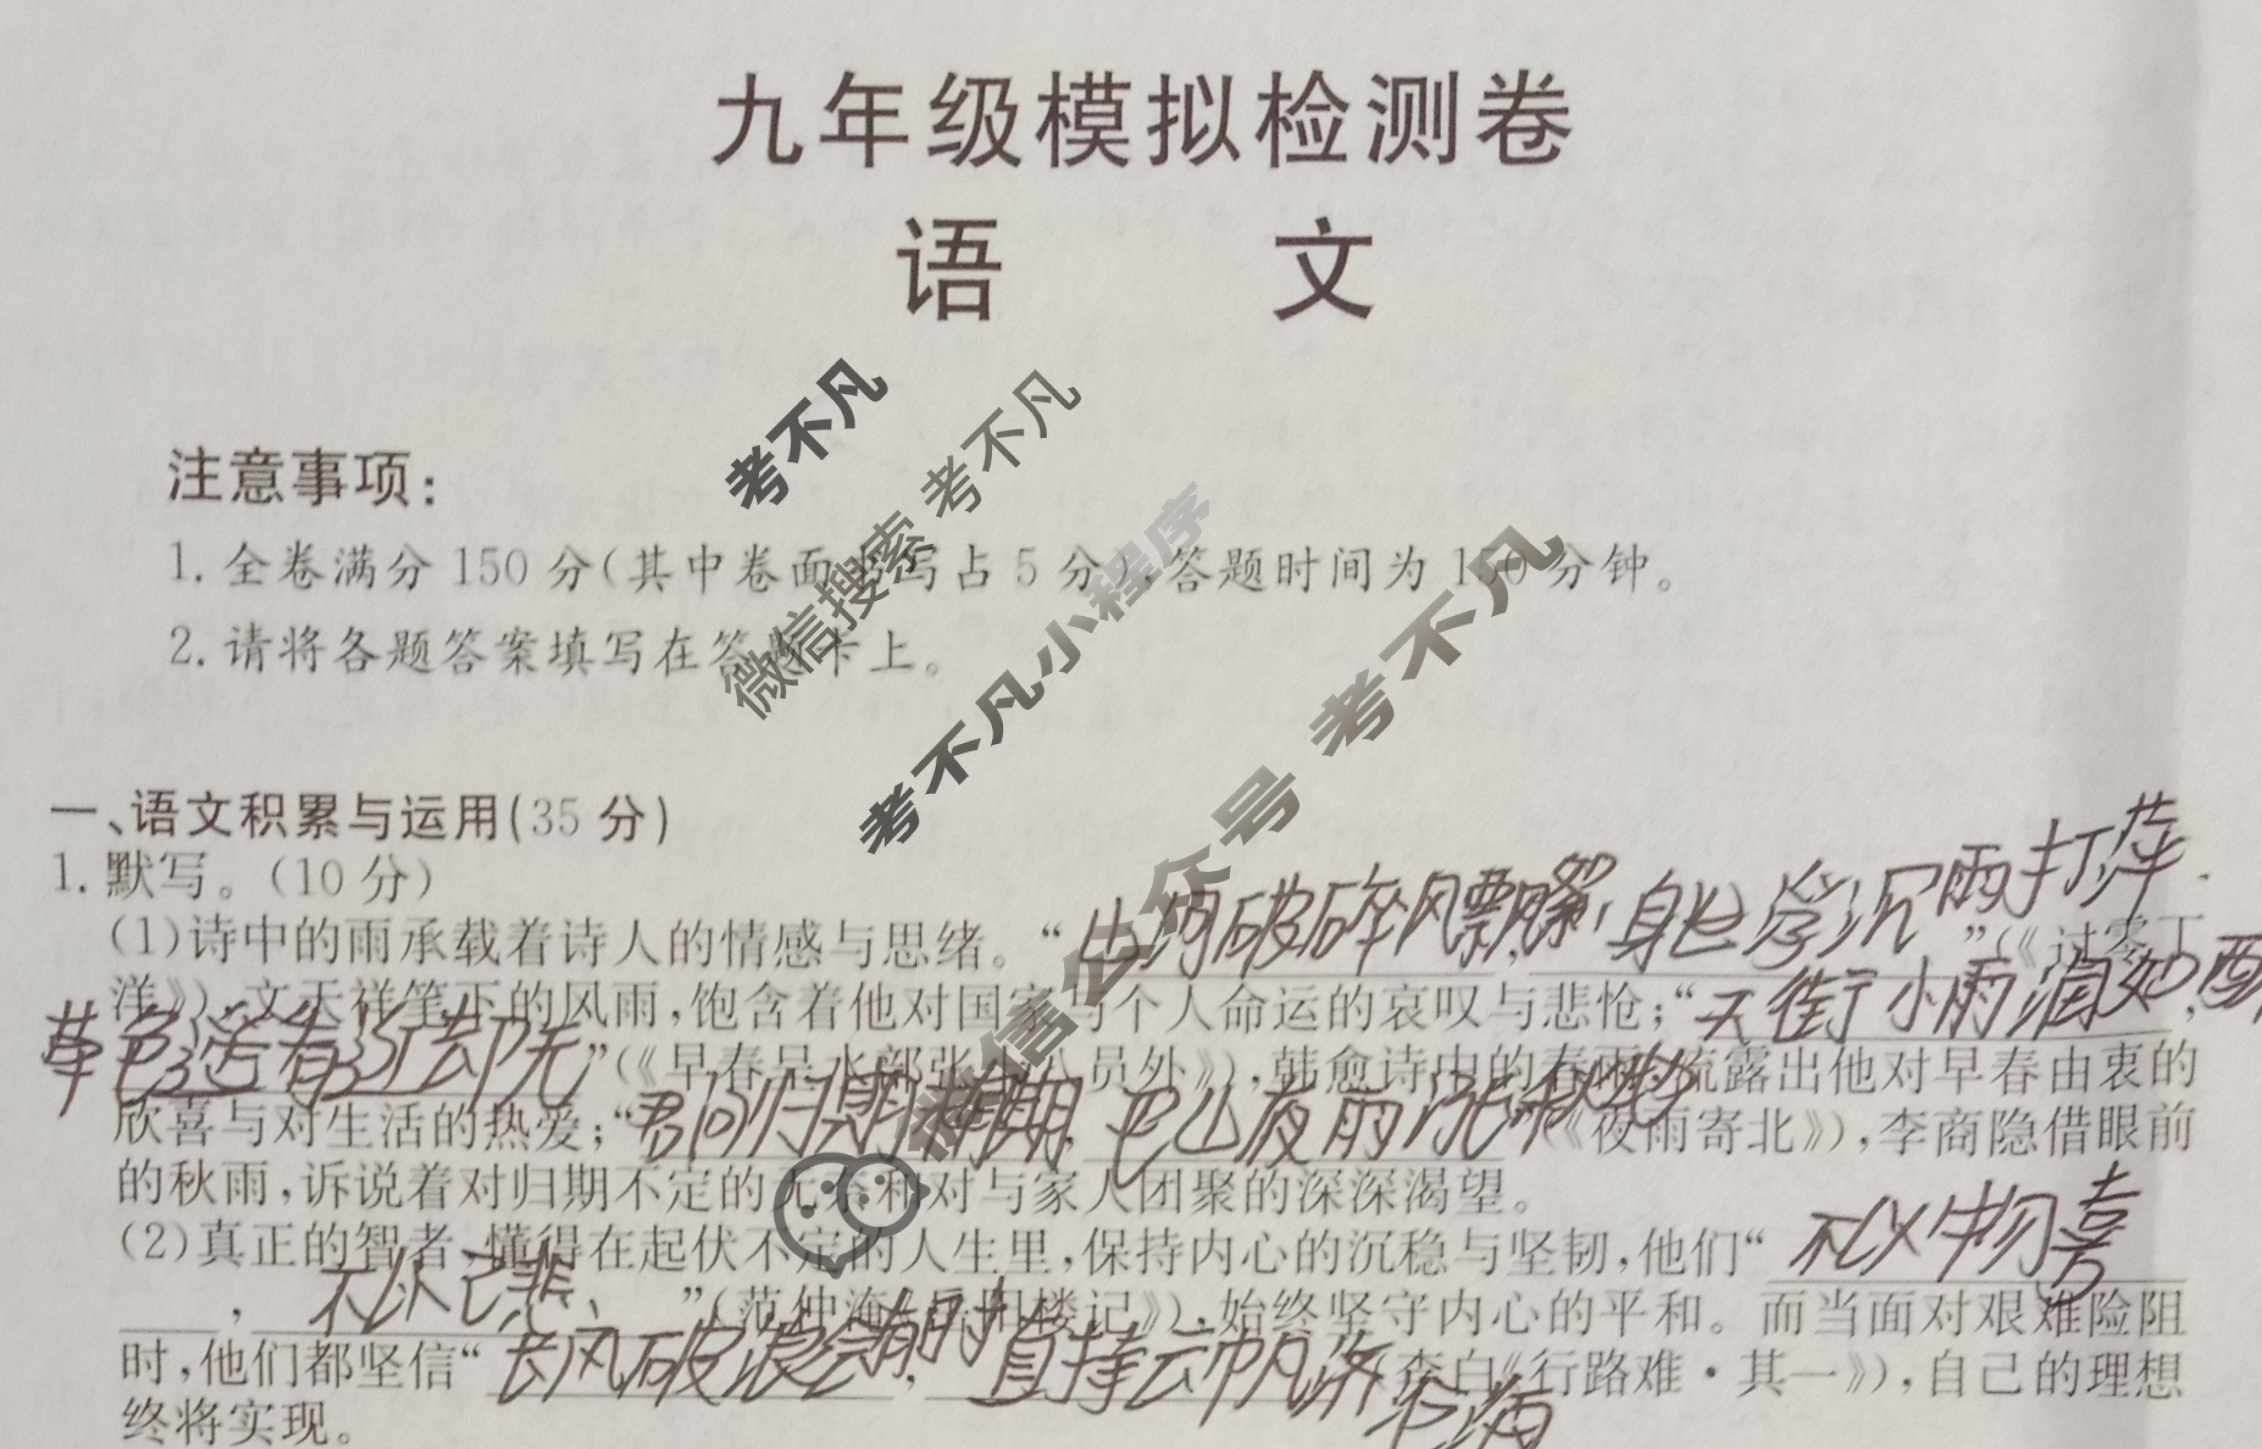 九年级模拟检测卷
语 文
注意事项：
1. 全卷满分 150 分(其中卷面书写占 5 分),答题时间为 150 分钟。
2. 请将各题答案填写在答题卡上。
一、语文积累与运用(35 分)
1. 默写。(10 分)
(1)诗中的雨承载着诗人的情感与思绪。“山河破碎风飘絮,身世浮沉雨打萍”(《过零丁
洋》),文天祥笔下的风雨,饱含着他对国家与个人命运的哀叹与悲怆;“天街小雨润如酥,
草色遥看近却无”(《早春呈水部张十八员外》),韩愈诗中的春雨,流露出他对早春由衷的
欣喜与对生活的热爱;“君问归期未有期,巴山夜雨涨秋池”(《夜雨寄北》),李商隐借眼前
的秋雨,诉说着对归期不定的无奈和对与家人团聚的深深渴望。
(2)真正的智者,懂得在起伏不定的人生里,保持内心的沉稳与坚韧,他们“不以物喜
,不以己悲”(范仲淹《岳阳楼记》),始终坚守内心的平和。而当面对艰难险阻
时,他们都坚信“长风破浪会有时,直挂云帆济沧海”(李白《行路难·其一》),自己的理想
终将实现。
考不凡
微信搜索 考不凡
考不凡小程序
微信公众号 考不凡